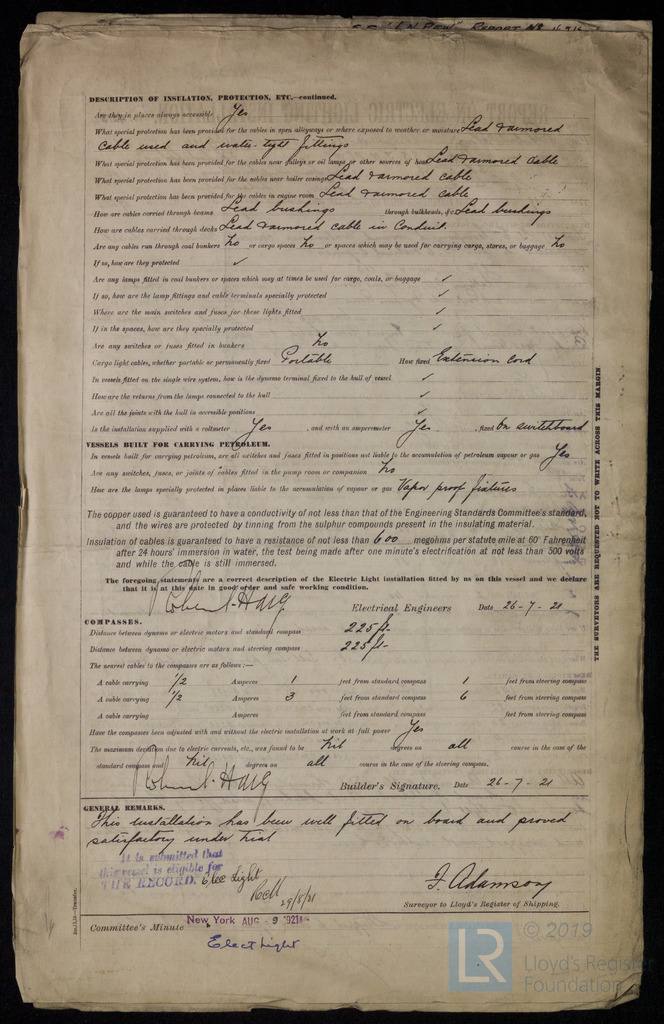 REPORT No
DESCRIPTION OF INSULATION, PROTECTION, ETC.—continued.
Are they in places always accessible Yes
What special protection has been provided for the cables in open alleyways or where exposed to weather or moisture Lead & armored
cable used and water-tight fittings
What special protection has been provided for the cables near galleys or oil lamps or other sources of heat Lead & armored cable
What special protection has been provided for the cables near boiler casings Lead & armored cable
What special protection has been provided for the cables in engine room Lead & armored cable
How are cables carried through beams Lead bushings through bulkheads, &c Lead bushings
How are cables carried through decks Lead & armored cable in Conduit.
Are any cables run through coal bunkers No or cargo spaces No or spaces which may be used for carrying cargo, stores, or baggage No
If so, how are they protected ✓
Are any lamps fitted in coal bunkers or spaces which may at times be used for cargo, coals, or baggage ✓
If so, how are the lamp fittings and cable terminals specially protected ✓
Where are the main switches and fuses for these lights fitted ✓
If in the spaces, how are they specially protected ✓
Are any switches or fuses fitted in bunkers No
Cargo light cables, whether portable or permanently fixed Portable How fixed Extension Cord
In vessels fitted on the single wire system, how is the dynamo terminal fixed to the hull of vessel ✓
How are the returns from the lamps connected to the hull ✓
Are all the joints with the hull in accessible positions ✓
Is the installation supplied with a voltmeter Yes, and with an amperemeter Yes, fixed On switchboard
VESSELS BUILT FOR CARRYING PETROLEUM.
In vessels built for carrying petroleum, are all switches and fuses fitted in positions not liable to the accumulation of petroleum vapour or gas Yes
Are any switches, fuses, or joints of cables fitted in the pump room or companion No
How are the lamps specially protected in places liable to the accumulation of vapour or gas Vapor proof fixtures
The copper used is guaranteed to have a conductivity of not less than that of the Engineering Standards Committee's standard,
and the wires are protected by tinning from the sulphur compounds present in the insulating material.
Insulation of cables is guaranteed to have a resistance of not less than 600 megohms per statute mile at 60° Fahrenheit
after 24 hours' immersion in water, the test being made after one minute's electrification at not less than 500 volts
and while the cable is still immersed.
The foregoing statements are a correct description of the Electric Light installation fitted by us on this vessel and we declare
that it is at this date in good order and safe working condition.
Electrical Engineers Date 26-7-21
COMPASSES.
Distance between dynamo or electric motors and standard compass 225 ft-
Distance between dynamo or electric motors and steering compass 225 ft-
The nearest cables to the compasses are as follows:—
A cable carrying 1/2 Amperes 1 feet from standard compass 1 feet from steering compass
A cable carrying 1/2 Amperes 3 feet from standard compass 6 feet from steering compass
A cable carrying Amperes feet from standard compass feet from steering compass
Have the compasses been adjusted with and without the electric installation at work at full power Yes
The maximum deviation due to electric currents, etc., was found to be Nil degrees on all course in the case of the
standard compass and Nil degrees on all course in the case of the steering compass.
Builder's Signature. Date 26-7-21
GENERAL REMARKS.
This installation has been well fitted on board and proved
satisfactory under trial
It is submitted that
this vessel is eligible for
THE RECORD. Elec Light
29/8/21
F. Adamson
Surveyor to Lloyd's Register of Shipping.
Committee's Minute New York AUG 9 1921
Elect Light
THE SURVEYORS ARE REQUESTED NOT TO WRITE ACROSS THIS MARGIN
LR © 2019
Lloyd's Register
Foundation